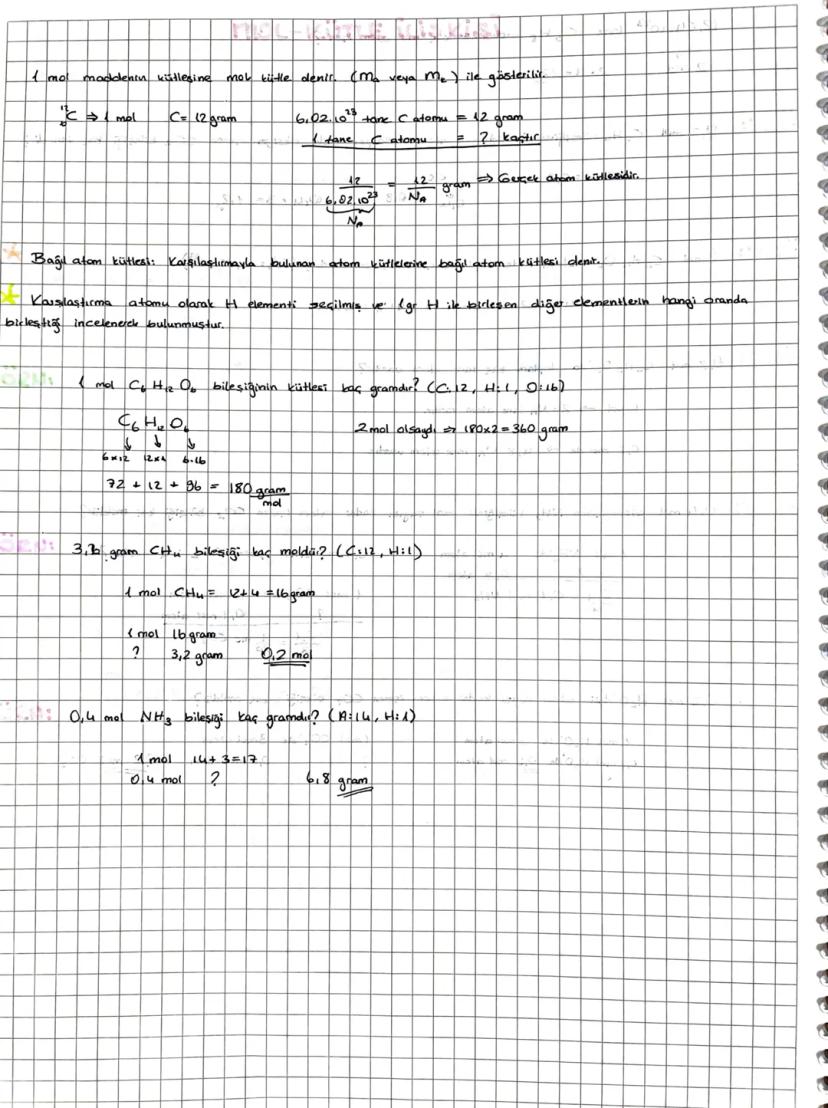 MOL-KÜTLE İLİŞKİSİ
1 mol maddenin kütlesine mol kütle denir. (Ma veya Me) ile gösterilir.
12 6C ⇒ 1 mol C= 12 gram 6,02.10²³ tane C atomu = 12 gram
1 tane C atomu = ? kaçtır
12 / 6,02.10²³ = 12 / NA gram ⇒ Gerçek atom kütlesidir.
NA
Bağıl atom kütlesi: Karşılaştırmayla bulunan atom kütlelerine bağıl atom kütlesi denir.
Karşılaştırma atomu olarak H elementi seçilmiş ve 1gr H ile birleşen diğer elementlerin hangi oranda
birleştiği incelenerek bulunmuştur.
1 mol C₆H₁₂O₆ bileşiğinin kütlesi kaç gramdır? (C:12, H:1, O:16)
C₆H₁₂O₆ 2 mol olsaydı ⇒ 180x2=360 gram
↓ ↓ ↓
6x12 12x1 6.16
72 + 12 + 96 = 180 gram/mol
gram CH₄ bileşiği kaç moldür? (C:12, H:1)
1 mol CH₄ = 12+4 =16gram
1 mol 16gram
? 3,2 gram 0,2 mol
0,4 mol NH₃ bileşiği kaç gramdır? (A:14, H:1)
1 mol 14+3=17
0,4 mol ? 6,8 gram